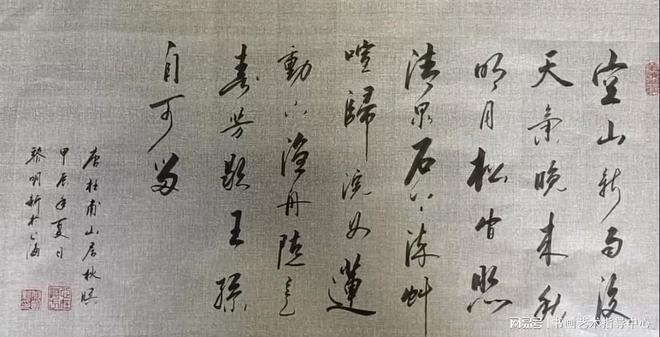 空山新雨後
天氣晚来秋
明月松间照
清泉石上流竹
喧歸浣女蓮
動下渔舟随意
春芳歇王孫
自可留
唐杜甫山居秋暝
甲辰年夏日
黎明新上海
搜狐号@书画艺术指导中心